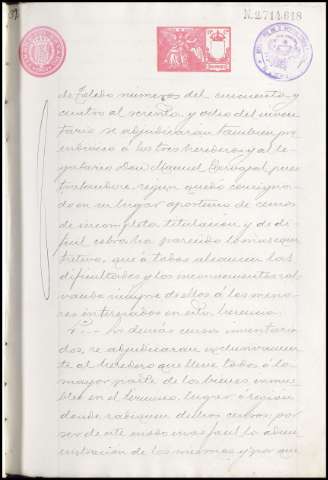 N. 2.714.618
de Toledo números del cincuenta y
cuatro al sesenta y ocho del inven
tario se adjudicarán tambien pro
indiviso á los tres herederos y al le
gatario Don Manuel Carvajal, pues
tratandose segun quedó consigna
do en su lugar oportuno de censos
de incompleta titulación y de di
ficil cobro ha parecido lo mas equi
tativo, que á todos alcancen las
dificultades y los inconvenientes sal
vando ninguno de ellos á los meno
res interesados en esta herencia.
Los demás censos inventaria
dos, se adjudicarán exclusivamen
te al heredero que lleve todos ó la
mayor parte de los bienes inmue
bles en el termino, lugar ó región
donde radiquen dichos censos por
ser de este modo mas facil la admi
nistración de los mismos y por que